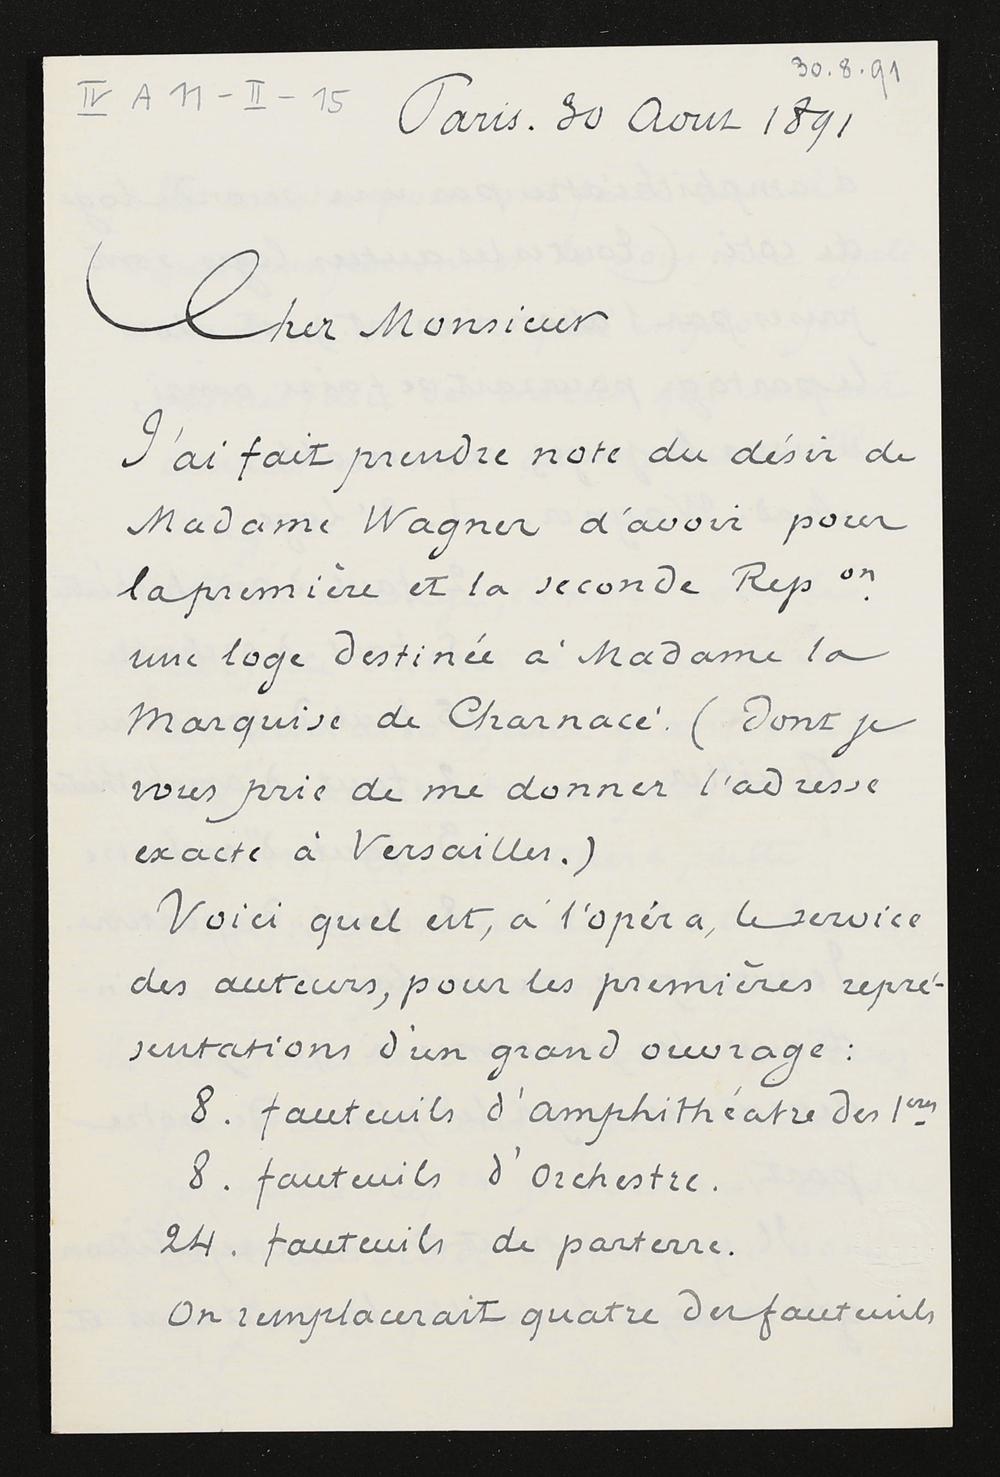 30.8.91
IV A 11-II-15
Paris. 30 Aout 1891
Cher Monsieur
J'ai fait prendre note du désir de
Madame Wagner d'avoir pour
la première et la seconde Rep on.
une loge destinée à Madame la
Marquise de Charnacé. (Dont je
vous prie de me donner l'adresse
exacte à Versailles.)
Voici quel est, à l'opéra, le service
des auteurs, pour les premières repré-
sentations d'un grand ouvrage :
8. fauteuils d'amphithéatre des 1eres
8. fauteuils d'Orchestre.
24. fauteuils de parterre.
On remplacerait quatre des fauteuils